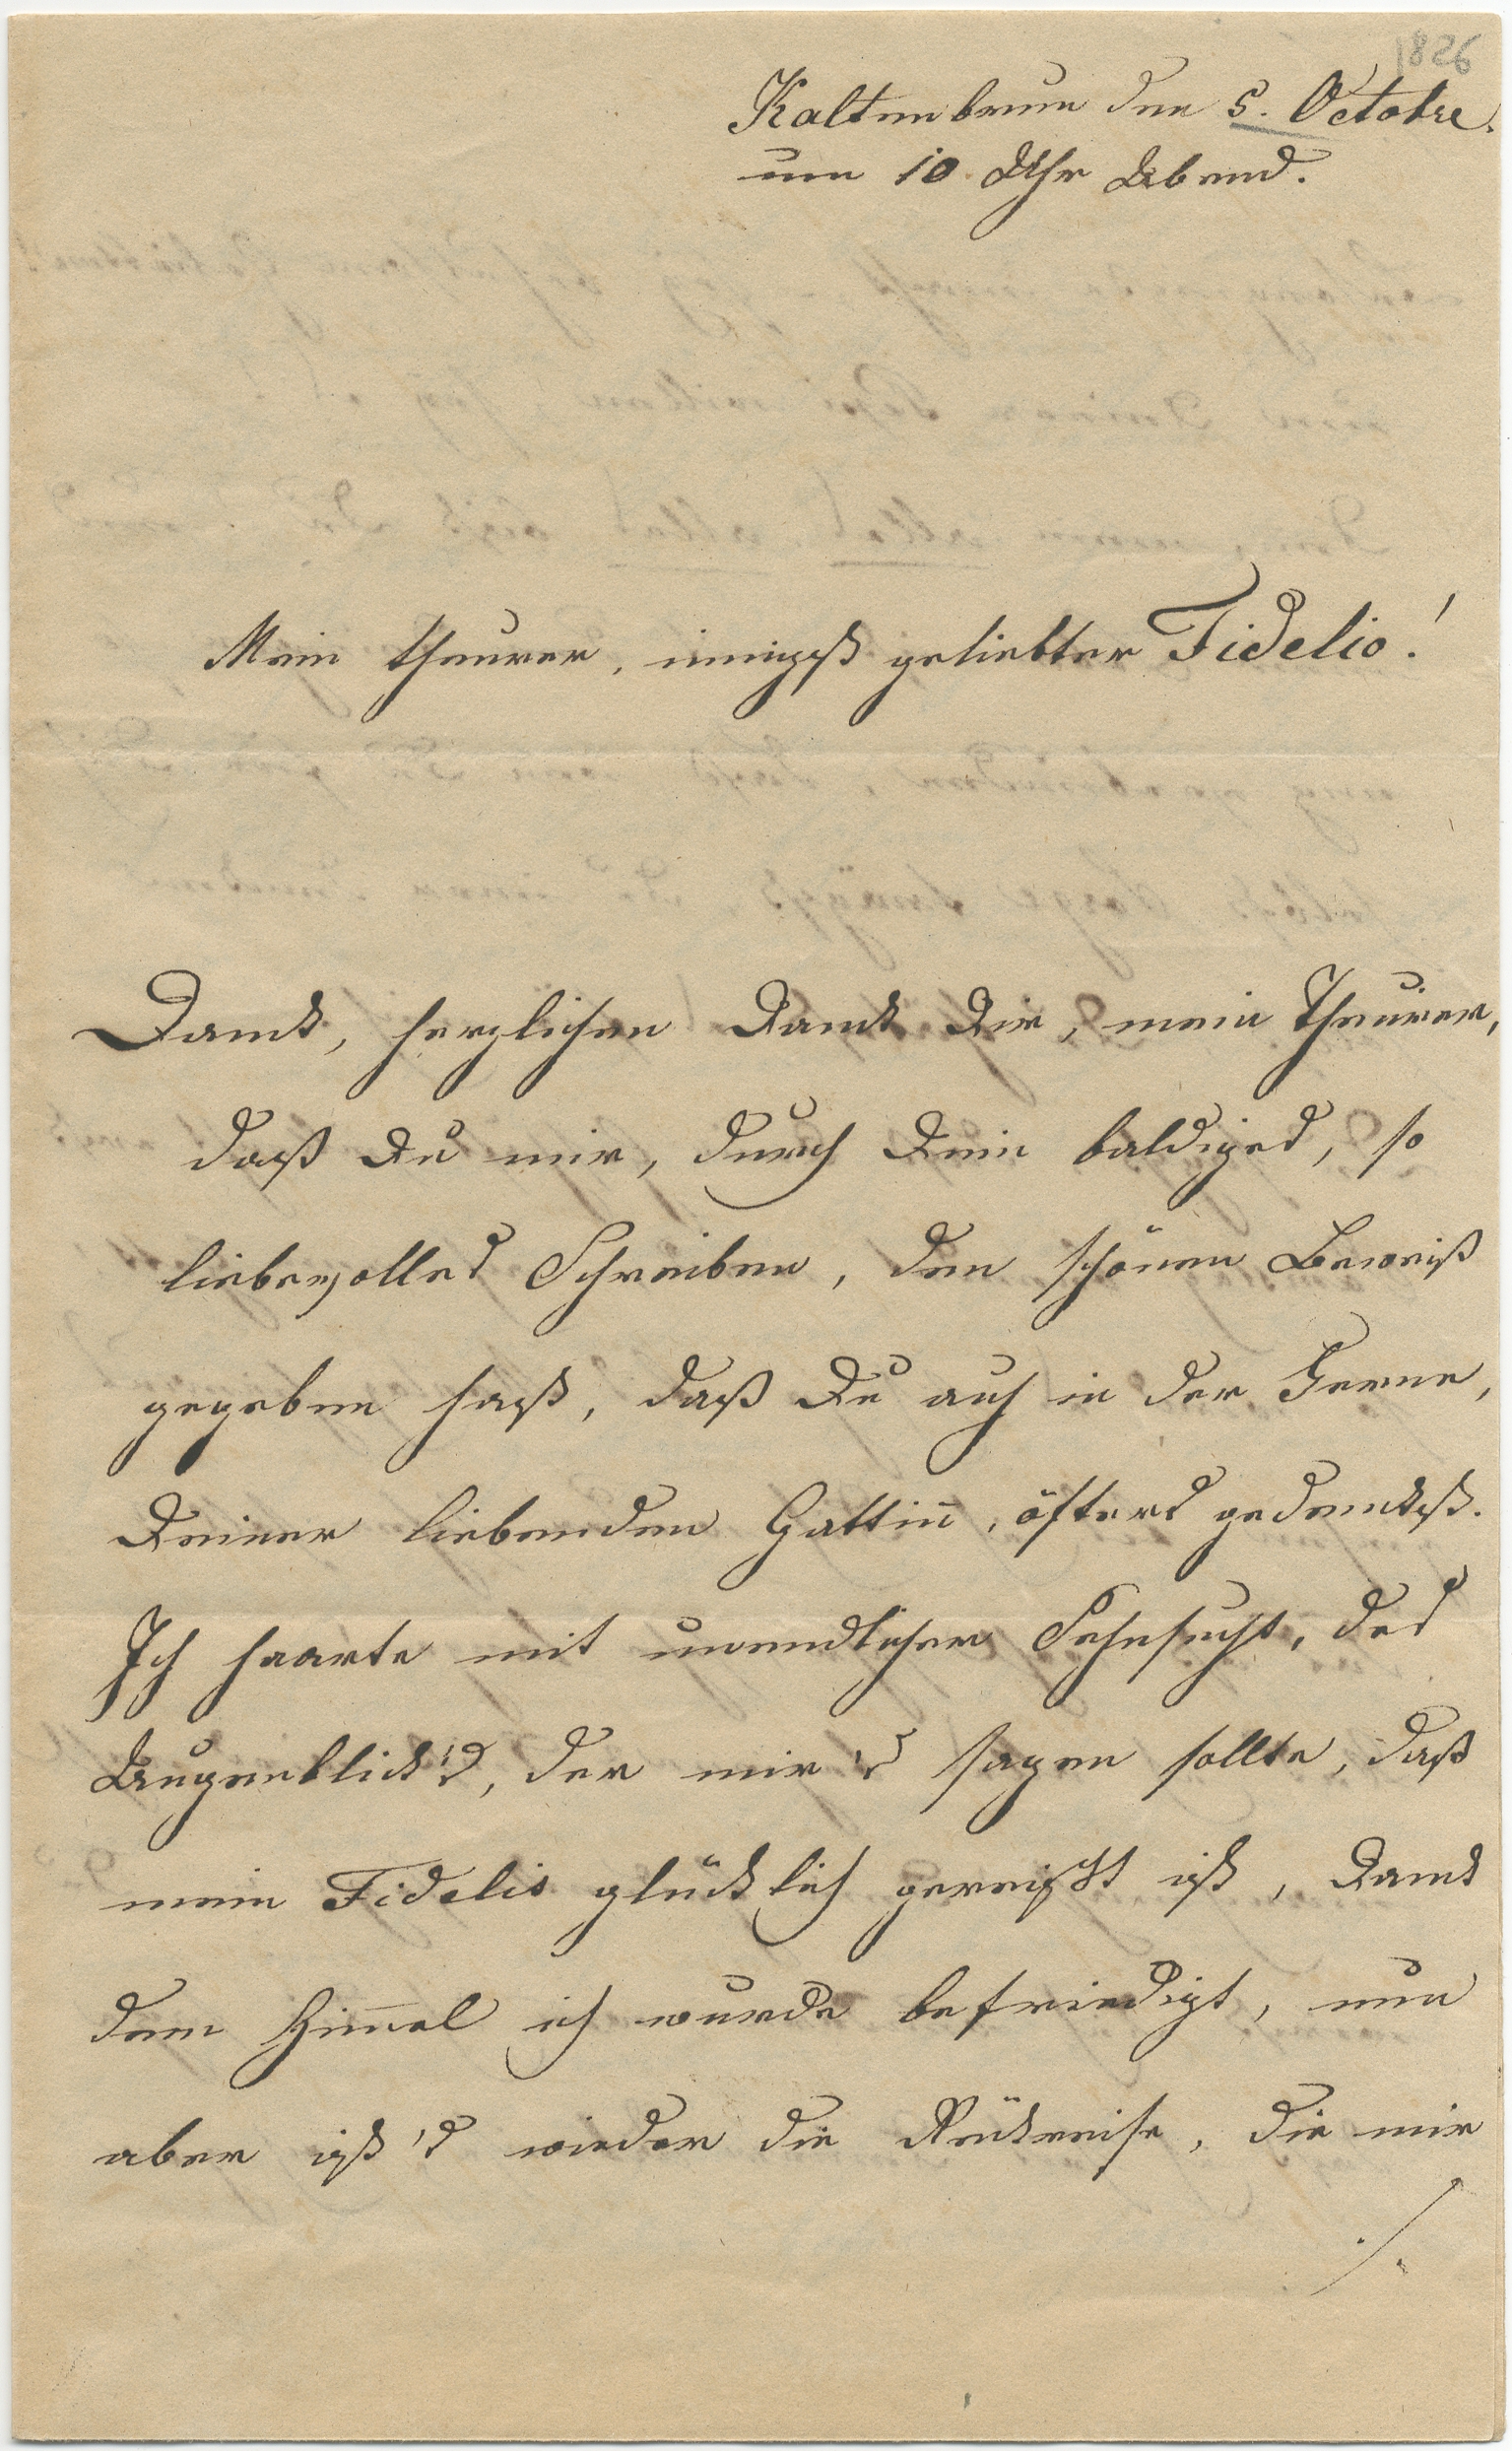 1826
Kaltenbrun den 5. Octobre.
um 10 Uhr Abend.
Mein theurer, innigst geliebter Fidelio!
Dank, herzlichen Dank Dir, mein Theurer,
daß Du mir, durch Dein baldiges, so
liebevolles Schreiben, den schönen Beweiß
gegeben hast, daß Du auch in der Ferne,
Deiner liebenden Gattin̄, öfters gedenkst.
Ich haarte mit unendlicher Sehnsucht, des
Augenblick's, der mir's sagen sollte, daß
mein Fidelis glücklich gereißt ist, Dank
dem Him̄el ich wurde befriedigt, nun
aber ist's wieder die Rükreise, die mir
./.